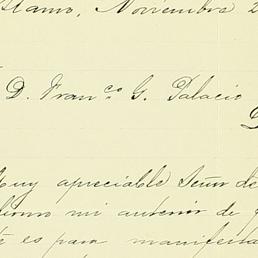 Alamo, Noviembre 2
D. Franco. G. Palacio
Muy apreciable Señor de
mi anterior de
es para manifesta